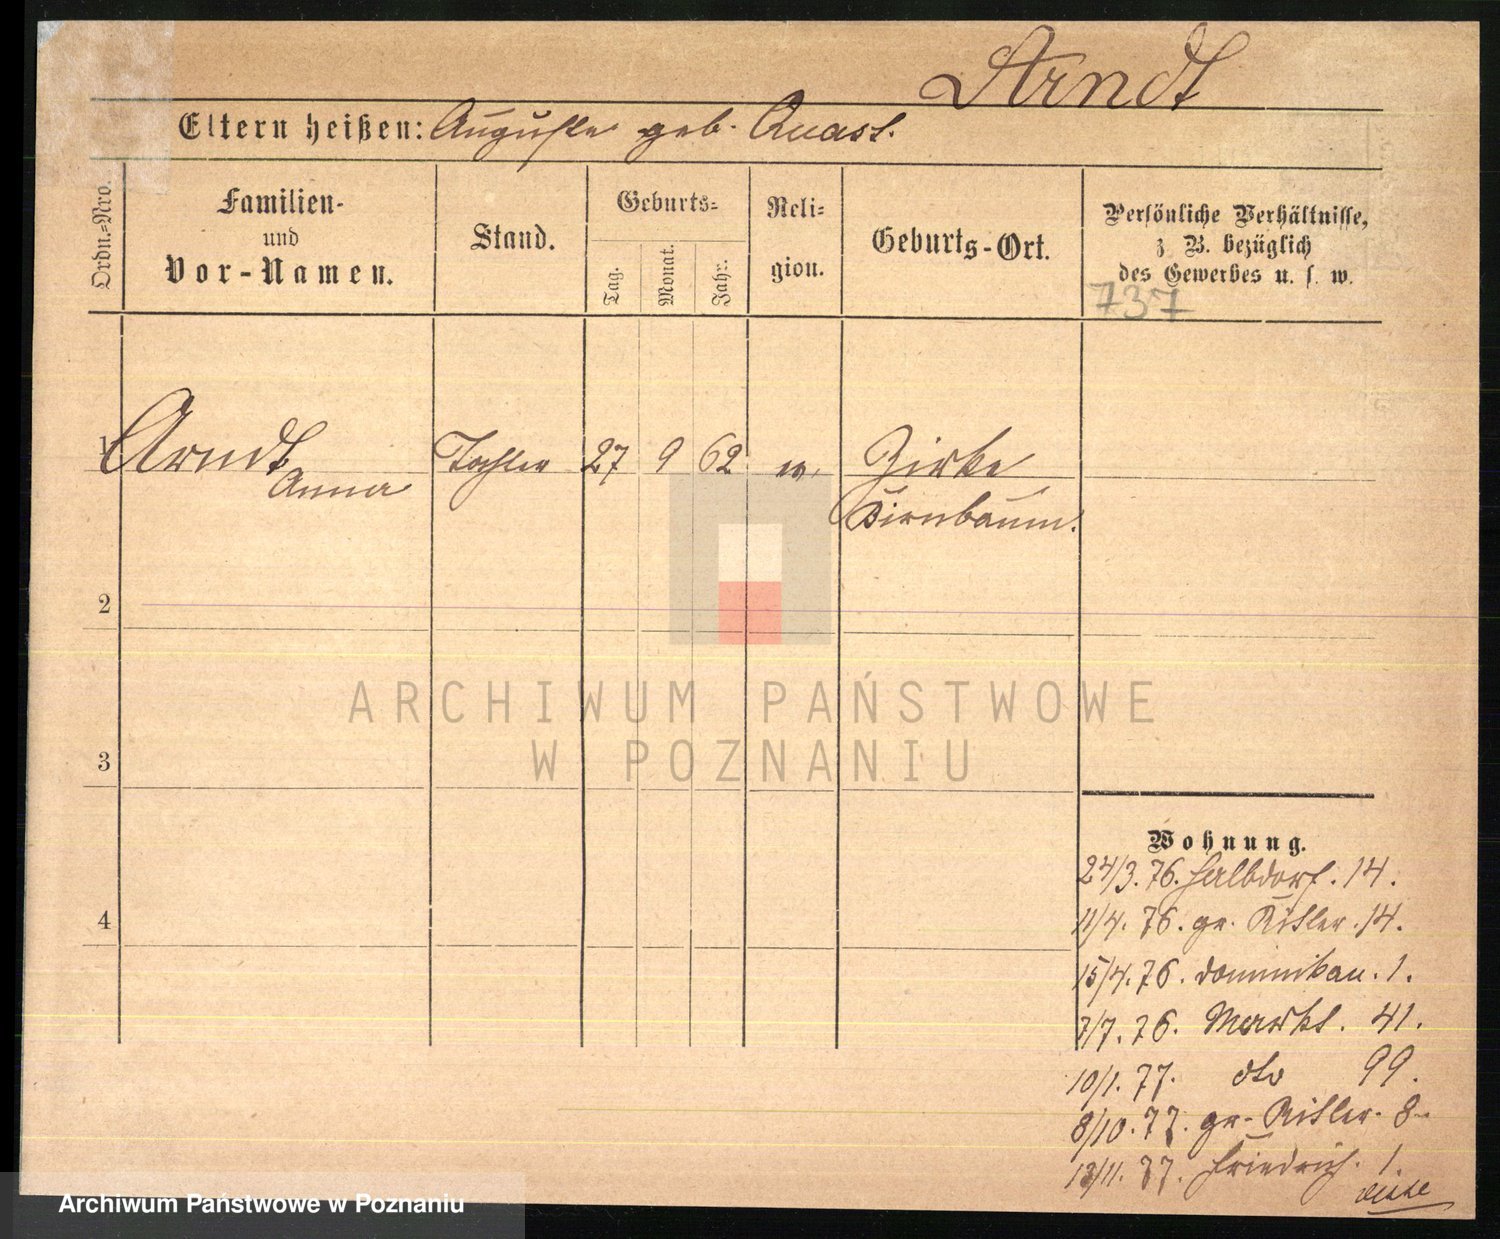 Arndt
Eltern heißen: Auguste geb. Quast.
Ordn.-Nro.
Familien-
und
Vor-Namen.
Stand.
Geburts-
Tag.
Monat.
Jahr.
Reli-
gion.
Geburts-Ort.
Persönliche Verhältnisse,
z. B. bezüglich
des Gewerbes u. s. w.
737
1 Arndt Tochter 27 9 62 ev. Zirke
Anna Birnbaum.
2
ARCHIWUM PAŃSTWOWE
W POZNANIU
3
Wohnung.
24/3. 76. Halbdorf. 14.
4
11/4. 76. gr. Ritter. 14.
15/4. 76. Dominikan. 1.
7/7. 76. Markt. 41.
10/1. 77. dto 99.
8/10. 77. gr. Ritter. 8
13/11. 77. Friedrich. 1.
Archiwum Państwowe w Poznaniu